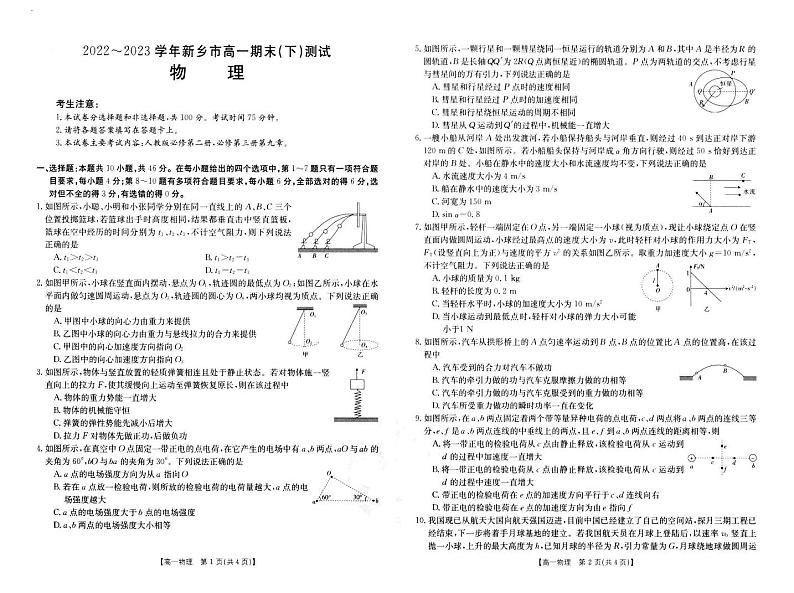 2022～2023 学年新乡市高一期末(下)测试
物　理
考生注意：
1. 本试卷分选择题和非选择题,共 100 分。考试时间 75 分钟。
2. 请将各题答案填写在答题卡上。
3. 本试卷主要考试内容:人教版必修第二册,必修第三册第九章。
一、选择题:本题共 10 小题,共 46 分。在每小题给出的四个选项中,第 1～7 题只有一项符合题
目要求,每小题 4 分;第 8～10 题有多项符合题目要求,每小题 6 分,全部选对的得 6 分,选
对但不全的得 3 分,有选错的得 0 分。
1. 如图所示,小聪、小明和小张同学分别在同一直线上的 A、B、C 三个
位置投掷篮球,若篮球出手时高度相同,结果都垂直击中竖直篮板,
篮球在空中经历的时间分别为 t₁、t₂、t₃,不计空气阻力,则下列说法
正确的是
A. t₁>t₂>t₃ B. t₁>t₂=t₃
C. t₁<t₂<t₃ D. t₁=t₂=t₃
A B C
2. 如图甲所示,小球在竖直面内摆动,悬点为 O₁,轨迹圆的最低点为 O₂,如图乙所示,小球在水
平面内做匀速圆周运动,悬点为 O₃,轨迹圆的圆心为 O₄,两小球均视为质点。下列说法正确
的是
A. 甲图中小球的向心力由重力来提供
B. 乙图中小球的向心力由重力与悬线拉力的合力来提供
C. 甲图中的向心加速度方向指向 O₂
D. 乙图中的向心加速度方向指向 O₃
甲 乙
3. 如图所示,物体与竖直放置的轻质弹簧相连且处于静止状态。若对物体施一竖
直向上的拉力 F,使其缓慢向上运动至弹簧恢复原长,则在该过程中
A. 物体的重力势能一直增大
B. 物体的机械能守恒
C. 弹簧的弹性势能先减小后增大
D. 拉力 F 对物体先做正功,后做负功
F
4. 如图所示,在真空中 O 点固定一带正电的点电荷,在它产生的电场中有 a、b 两点,aO 与 ab 的
夹角为 60°,bO 与 ba 的夹角为 30°。下列说法正确的是
A. a 点的电场强度方向为从 a 指向 O
B. 若在 a 点放一检验电荷,则所放的检验电荷的电荷量越大,a 点的电
场强度越大
C. a 点的电场强度大于 b 点的电场强度
D. a、b 两点的电场强度大小相等
O
a 60° 30° b
【高一物理　第 1 页(共 4 页)】
5. 如图所示,一颗行星和一颗彗星绕同一恒星运行的轨道分别为 A 和 B,其中 A 是半径为 R 的
圆轨道,B 是长轴 QQ′为 2R(Q 点离恒星近)的椭圆轨道。P 点为两轨道的交点,不考虑行星
与彗星间的万有引力,下列说法正确的是
A. 彗星和行星经过 P 点时的速度相同
B. 彗星和行星经过 P 点时的加速度相同
C. 彗星和行星绕恒星运动的周期不相同
D. 彗星从 Q 运动到 Q′的过程中,机械能一直增大
P
恒星
6. 一艘小船从河岸 A 处出发渡河,若小船保持船头与河岸垂直,则经过 40 s 到达正对岸下游
120 m 的 C 处,如图所示。若小船船头保持与河岸成 α 角方向行驶,则经过 50 s 恰好到达正
对岸的 B 处。小船在静水中的速度大小和水流速度均不变,下列说法正确的是
A. 水流速度大小为 4 m/s
B. 船在静水中的速度大小为 3 m/s
C. 河宽为 150 m
D. sin α=0.8
B C
水流
A
7. 如图甲所示,轻杆一端固定在 O 点,另一端固定一小球(视为质点),现让小球绕定点 O 在竖
直面内做圆周运动,小球经过最高点的速度大小为 v,此时轻杆对小球的作用力大小为 F_T,
F_T(设竖直向上为正)与速度的平方 v² 的关系如图乙所示。取重力加速度大小 g=10 m/s²,
不计空气阻力。下列说法正确的是
A. 小球的质量为 0.1 kg
B. 轻杆的长度为 0.2 m
C. 当轻杆水平时,小球的加速度大小为 10 m/s²
D. 当小球运动到最低点时,轻杆对小球的弹力大小可能
小于 1 N
甲 乙
8. 如图所示,汽车从拱形桥上的 A 点匀速率运动到 B 点,B 点的位置比 A 点的位置高,在该过
程中
A. 汽车受到的合力对汽车不做功
B. 汽车的牵引力做的功与汽车克服摩擦力做的功相等
C. 汽车的牵引力做的功与汽车克服受到的重力做的功相等
D. 汽车所受重力做功的瞬时功率一直在变化
A B
9. 如图所示,在 a、b 两点固定着两个带等量异种电荷的点电荷,c、d 两点将 a、b 两点的连线三等
分,e、f 是 a、b 两点连线的中垂线上的两点,且 e、f 到 a、b 两点连线的距离相等,则
A. 将一带正电的检验电荷从 c 点由静止释放,该检验电荷从 c 运动到
d 的过程中加速度一直增大
B. 将一带正电的检验电荷从 c 点由静止释放,该检验电荷从 c 运动到
d 的过程中速度一直增大
C. 带正电的检验电荷在 e 点的加速度方向平行于 c、d 连线向右
D. 带正电的检验电荷在 e 点的加速度方向为由 e 指向 f
10. 我国现已从航天大国向航天强国迈进,目前中国已经建立了自己的空间站,探月三期工程已
经结束,下一步将着手月球基地的建立。若我国航天员在月球上登陆后,以速率 v₀ 竖直上
抛一小球,上升的最大高度为 h,已知月球的半径为 R,引力常量为 G,月球绕地球做圆周运
【高一物理　第 2 页(共 4 页)】